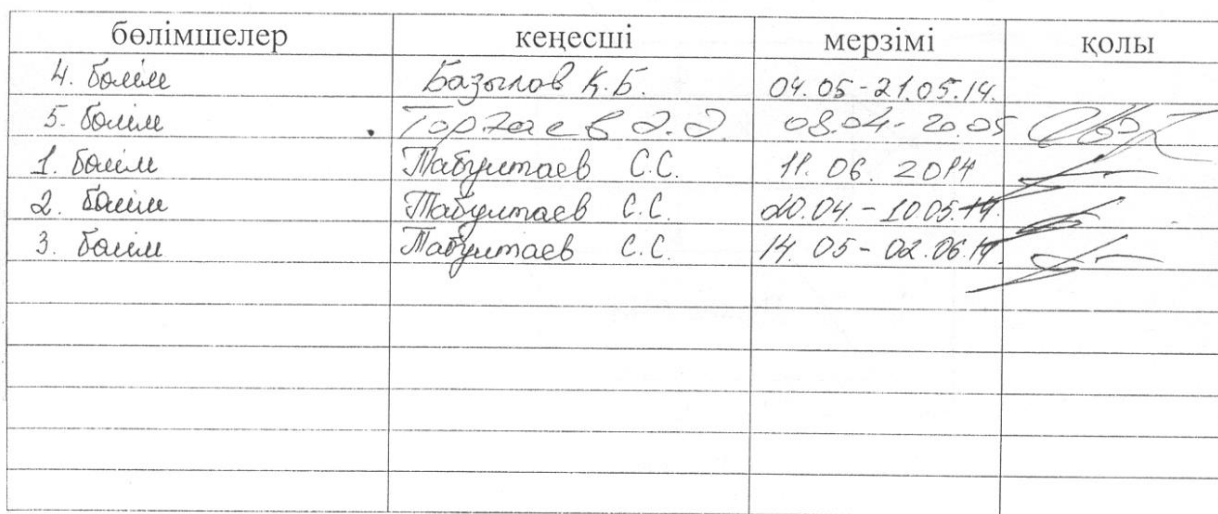 бөлімшелер кеңесші мерзімі қолы
4. бөлім Базылов Қ.Б. 04.05-21.05.14.
5. бөлім Тортаев Ә.Ә. 08.04-20.05
1. бөлім Табултаев С.С. 11.06.2014
2. бөлім Табултаев С.С. 20.04.-10.05.14.
3. бөлім Табултаев С.С. 14.05-02.06.14.